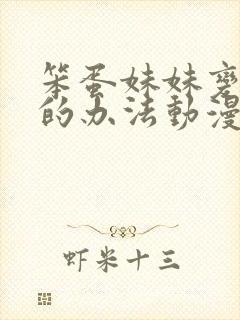 笨蛋妹妹
的办法動漫
虾米十三